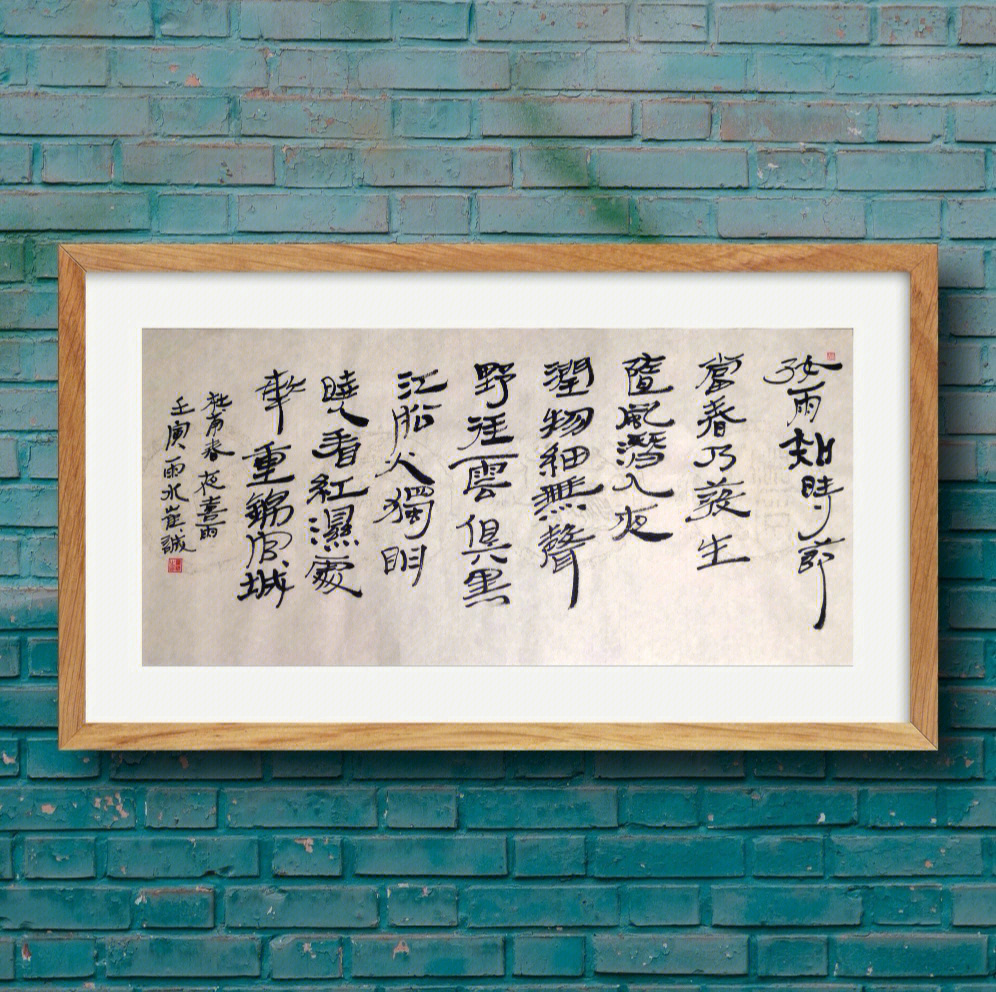 好雨知時節
當春乃發生
隨風潛入夜
潤物細無聲
野徑雲俱黑
江船火獨明
曉看紅濕處
花重錦官城
杜甫春夜喜雨
壬寅雨水崔誠